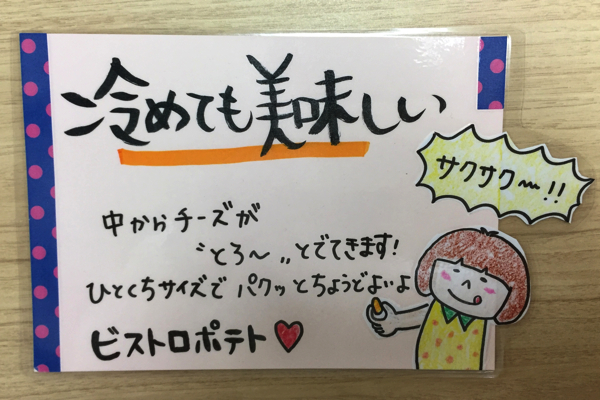 冷めても美味しい
サクサク〜!!
中からチーズが
〝とろ〜〟とでてきます!
ひとくちサイズで パクッとちょうどよいよ
ビストロポテト♥